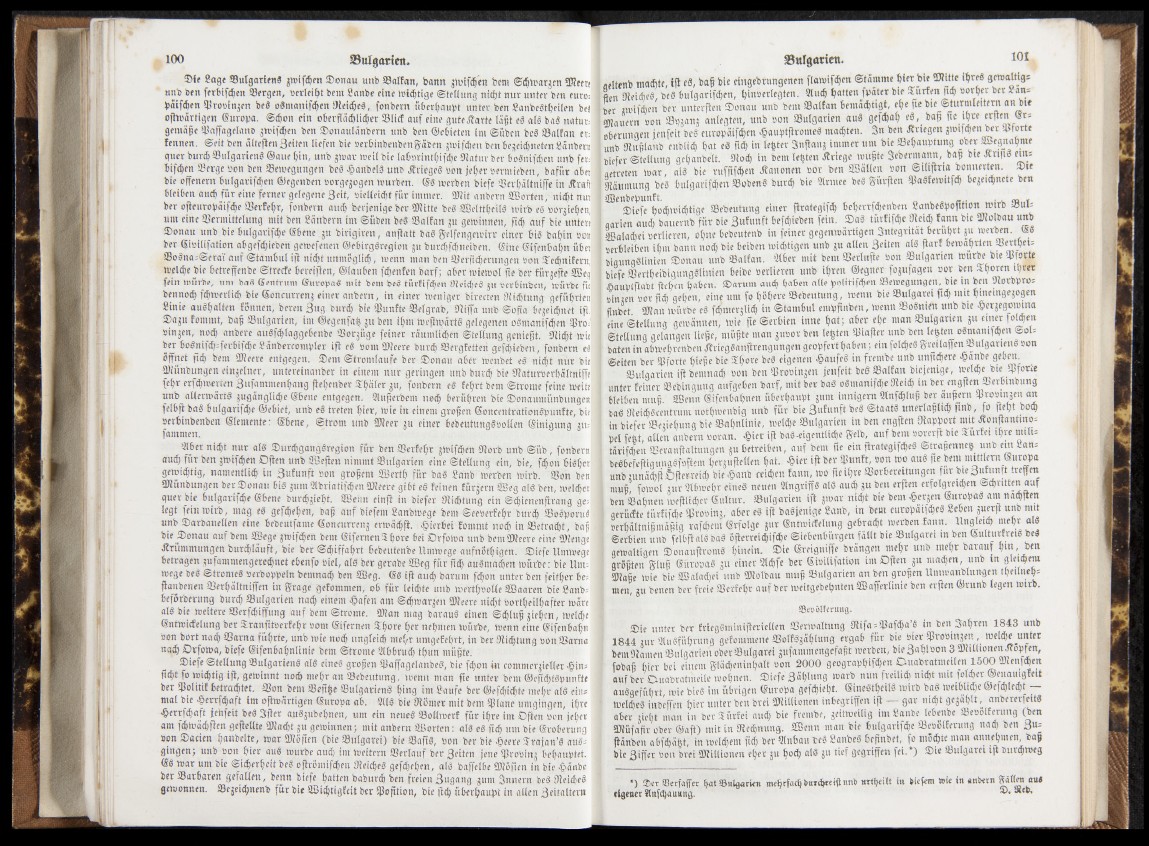 100 Bulgarien.
Die Lage Bulgariens zwischen Donau und Balkan, dann zwischen dem Schwarzen Meere
und den serbischen Bergen, verleiht dem Lande eine wichtige Stellung nicht nur unter den euro-
päischen Provinzen des osmanischen Reiches, sondern überhaupt unter den Landestheilen des
ostwärtigen Europa. Schon ein oberflächlicher Blick auf eine gute Karte läßt es als das natur-
gemäße Passageland zwischen den Donauländern und den Gebieten im Süden des Balkan er-
kennen. Seit den ältesten Zeiten liefen die verbindenden Fäden zwischen den bezeichneten Ländern
quer durch Bulgariens Gaue hin, und zwar weil die labyrinthische Natur der bosnischen und ser-
bischen Berge von den Bewegungen des Handels und Krieges von jeher vermieden, dafür aber
die offenern bulgarischen Gegenden vorgezogen wurden. Es werden diese Verhältnisse in Kraft
bleiben auch für eine ferner gelegene Zeit, vielleicht für immer. Mit andern Worten, nicht nur
der osteuropäische Verkehr, sondern auch derjenige der Mitte des Welttheils wird es vorziehen,
um eine Vermittelung mit den Ländern im Süden des Balkan zu gewinnen, sich auf die untere
Donau und die bulgarische Ebene zu dirigiren, anstatt das Felsengewirr einer bis dahin von
der Civilisation abgeschieden gewesenen Gebirgsregion zu durchschneiden. Eine Eisenbahn über
Bosna-Seraï auf Stambul ist nicht unmöglich, wenn man den Versicherungen von Technikern,
welche die betreffende Strecke bereisten, Glauben schenken darf; aber wiewol sie der kürzeste Weg
sein würde, um das Centrum Europas mit dem des türkischen Reiches zu verbinden, würde sie
dennoch schwerlich die Concurrenz einer andern, in einer weniger directen Richtung geführten
Linie aushalten können, deren Zug durch die Punkte Belgrad, Nissa und Sofia bezeichnet ist.
Dazu kommt, daß Bulgarien, im Gegensatz zu den ihm westwärts gelegenen osmanischen Pro-
vinzen, noch andere ausschlaggebende Vorzüge seiner räumlichen Stellung genießt. Nicht wie
der bosnisch-serbische Ländercomplex ist es vom Meere durch Bergketten geschieden, sondern es
öffnet sich dem Meere entgegen. Dem Stromlaufe der Donau aber wendet es nicht nur die
Mündungen einzelner, untereinander in einem nur geringen und durch die Naturverhältnisse
sehr erschwerten Zusammenhang stehender Thäler zu, sondern es kehrt dem Strome seine weite
und allerwärts zugängliche Ebene entgegen. Außerdem noch berühren die Donaumündungen
selbst das bulgarische Gebiet, und es treten hier, wie in einem großen Concentrationspunkte, die
verbindenden Elemente: Ebene, Strom und Meer zu einer bedeutungsvollen Einigung zu-
sammen.
Aber nicht nur als Durchgangsregion für den Verkehr zwischen Nord und Süd, sondern
auch für den zwischen Osten und Westen nimmt Bulgarien eine Stellung ein, die, schon bisher
gewichtig, namentlich in Zukunft von großem Werth für das Land werden wird. Von den
Mündungen der Donau bis zum Adriatischen Meere gibt es keinen kürzern Weg als den, welcher
quer die bulgarische Ebene durchzieht. Wenn einst in dieser Richtung ein Schienenstrang ge-
legt sein wird, mag es geschehen, daß auf diesem Landwege dem Seeverkehr durch Bosporus
und Dardanellen eine bedeutsame Concurrenz erwächst. Hierbei kommt noch in Betracht, daß
die Donau auf dem Wege zwischen dem Eisernen Thore bei Orsowa und dem Meere eine Menge
Krümmungen durchläuft, die der Schiffahrt bedeutende Umwege aufnöthigen. Diese Umwege
betragen zusammengerechnet ebenso viel, als der gerade Weg für sich ausmachen würde: die Um-
wege des Stromes verdoppeln demnach den Weg. Es ist auch darum schon unter den seither be-
standenen Verhältnissen in Frage gekommen, ob für leichte und werthvolle Waaren die Land-
beförderung durch Bulgarien nach einem Hafen am Schwarzen Meere nicht vortheilhafter wäre
als die weitere Verschiffung auf dem Strome. Man mag daraus einen Schluß ziehen, welche
Entwickelung der Transitverkehr vom Eisernen Thore her nehmen würde, wenn eine Eisenbahn
von dort nach Varna führte, und wie noch ungleich mehr umgekehrt, in der Richtung von Varna
nach Orsowa, diese Eisenbahnlinie dem Strome Abbruch thun müßte.
Diese Stellung Bulgariens als eines großen Passagelandes, die schon in commerzieller Hin-
sicht so wichtig ist, gewinnt noch mehr an Bedeutung, wenn man sie unter dem Gesichtspunkte
der Politik betrachtet. Von dem Besitze Bulgariens hing im Laufe der Geschichte mehr als ein-
mal die Herrschaft im ostwärtigen Europa ab. Als die Römer mit dem Plane umgingen, ihre
Herrschaft jenseit des Ister auszudehnen, um ein neues Bollwerk für ihre im Osten von jeher
am schwächsten gestellte Macht zu gewinnen; mit andern Worten: als es sich um die Eroberung
von Dacien handelte, war Mösien (die Bulgarei) die Basis, von der die Heere Trajan's aus-
gingen; und von hier aus wurde auch im weitern Verlauf der Zeiten jene Provinz behauptet.
Es war um die Sicherheit des oströmischen Reiches geschehen, als dasselbe Mösien in die Hände
der Barbaren gefallen, denn diese hatten dadurch den freien Zugang zum Innern des Reiches
gewonnen. Bezeichnend für die Wichtigkeit der Position, die sich überhaupt in allen Zeitaltern
Bulgarien. 101
geltend machte, ist es, daß die eingedrungenen slawischen Stämme hier die Mitte ihres gewaltig-
sten Reiches, des bulgarischen, hinverlegten. Auch hatten später die Türken sich vorher der Län-
der zwischen der untersten Donau und dem Balkan bemächtigt, ehe sie die Sturmleitern an die
Mauern von Byzanz anlegten, und von Bulgarien aus geschah es, daß sie ihre ersten Er-
oberungen jenseit des europäischen Hauptstromes machten. In den Kriegen zwischen der Pforte
und Rußland endlich hat es sich in letzter Instanz immer um die Behauptung oder Wegnahme
dieser Stellung gehandelt. Noch in dem letzten Kriege wußte Jedermann, daß die Krisis ein-
getreten war, als die russischen Kanonen vor den Wällen von Silistria donnerten. Die
Räumung des bulgarischen Bodens durch die Armee des Fürsten Paskewitsch bezeichnete den
Wendepunkt.
Diese hochwichtige Bedeutung einer strategisch beherrschenden Landesposition wird Bul-
garien auch dauernd für die Zukunft beschieden sein. Das türkische Reich kann die Moldau und
Walachei verlieren, ohne bedeutend in seiner gegenwärtigen Integrität berührt zu werden. Es
verbleiben ihm dann noch die beiden wichtigen und zu allen Zeiten als stark bewährten Verthei-
digungslinien Donau und Balkan. Aber mit dem Verluste von Bulgarien würde die Pforte
diese Vertheidigungslinien beide verlieren und ihren Gegner sozusagen vor den Thoren ihrer
Hauptstadt stehen haben. Darum auch haben alle politischen Bewegungen, die in den Nordpro-
vinzen vor sich gehen, eine um so höhere Bedeutung, wenn die Bulgarei sich mit hineingezogen
findet. Man würde es schmerzlich in Stambul empfinden, wenn Bosnien und die Herzegowina
eine Stellung gewännen, wie sie Serbien inne hat; aber ehe man Bulgarien zu einer solchen
Stellung gelangen ließe, müßte man zuvor den letzten Piaster und den letzten osmanischen Sol-
daten in abwehrenden Kriegsanstrengungen geopfert haben; ein solches Freilassen Bulgariens von
Seiten der Pforte hieße die Thore des eigenen Hauses in fremde und unsichere Hände geben.
Bulgarien ist demnach von den Provinzen jenseit des Balkan diejenige, welche die Pforte
unter keiner Bedingung aufgeben darf, mit der das osmanische Reich in der engsten Verbindung
bleiben muß. Wenn Eisenbahnen überhaupt zum innigern Anschluß der äußern Provinzen an
das Reichscentrum nothwendig und für die Zukunft des Staats unerlaßlich sind, so steht doch
in dieser Beziehung die Bahnlinie, welche Bulgarien in den engsten Rapport mit Konstantino-
pel setzt, allen andern voran. Hier ist das eigentliche Feld, auf dem vorerst die Türkei ihre mili-
tärischen Veranstaltungen zu betreiben, auf dem sie ein strategisches Straßennetz und ein Lan-
desbefestigungssystem herzustellen hat. Hier ist der Punkt, von wo aus sie dem mittlern Europa
und zunächst Östreich die Hand reichen kann, wo sie ihre Vorbereitungen für die Zukunft treffen
muß, sowol zur Abwehr eines neuen Angriffs als auch zu den ersten erfolgreichen Schritten auf
den Bahnen westlicher Cultur. Bulgarien ist zwar nicht die dem Herzen Europas am nächsten
gerückte türkische Provinz, aber es ist dasjenige Land, in dem europäisches Leben zuerst und mit
verhältnißmäßig raschem Erfolge zur Entwickelung gebracht werden kann. Ungleich mehr als
Serbien und selbst als das östreichische Siebenbürgen fällt die Bulgarei in den Culturkreis des
gewaltigen Donaustroms hinein. Die Ereignisse drängen mehr und mehr darauf hin, den
größten Fluß Europas zu einer Achse der Civilisation im Osten zu machen, und in gleichem
Maße wie die Walachei und Moldau muß Bulgarien an den großen Umwandlungen theilneh-
men, zu denen der freie Verkehr auf der weitgedehnten Wasserlinie den ersten Grund legen wird.
Bevölkerung.
Die unter der kriegsministeriellen Verwaltung Risa-Pascha's in den Jahren 1843 und
1844 zur Ausführung gekommene Volkszählung ergab für die vier Provinzen, welche unter
dem Namen Bulgarien oder Bulgarei zusammengefaßt werden, die Zahl von 3 Millionen Köpfen,
sodaß hier bei einem Flächeninhalt von 2000 geographischen Quadratmeilen 1500 Menschen
auf der Quadratmeile wohnen. Diese Zählung ward nun freilich nicht mit solcher Genauigkeit
ausgeführt, wie dies im übrigen Europa geschieht. Einestheils wird das weibliche Geschlecht —
welches indessen hier unter den drei Millionen inbegriffen ist — gar nicht gezählt, andererseits
aber zieht man in der Türkei auch die fremde, zeitweilig im Lande lebende Bevölkerung (den
Müsafir oder Gast) mit in Rechnung. Wenn man die bulgarische Bevölkerung nach den Zu-
ständen abschätzt, in welchem sich der Anbau des Landes befindet, so möchte man annehmen, daß
die Ziffer von drei Millionen eher zu hoch als zu tief gegriffen sei.*) Die Bulgarei ist durchweg
*) Der Verfasser hat Bulgarien mehrfach durchreist und urtheilt in diesem wie in andern Fällen aus
eigener Anschauung. D. Red.